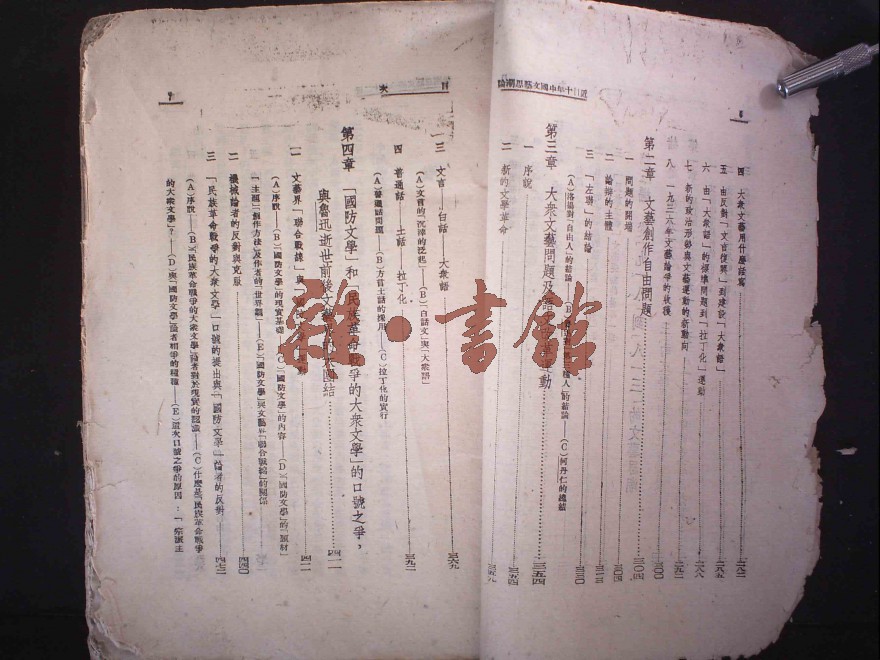 近二十年中國文藝思潮論
四 大衆文藝用什麼話寫 二八二
五 由反對「文言復興」到建設「大衆語」 二八五
六 由「大衆語」的標準問題到「拉丁化」運動 二八八
七 新的政治形勢與文藝運動的新動向 二九二
八 一九三六年文藝論爭的收穫 三〇〇
第二章 文藝創作自由問題 三〇四
一 問題的開端 三〇四
二 論辯的主體
三 「左聯」的結論 三三〇
(A)洛揚對「自由人」的結論 (C)何丹仁的總結
第三章 大衆文藝問題及 動 三五四
一 序說 三五四
二 新的文學革命
目次
三 文言——白話——大衆語 三六九
(A)文言的「沉滓的泛起」——(B)「白話文」與「大衆語」
四 普通話——土話——拉丁化 三九二
(A)普通話問題——(B)方言土話的採用——(C)拉丁化的實行
第四章 「國防文學」和「民族革命戰爭的大衆文學」的口號之爭,
與魯迅逝世前後文藝 團結 四一一
一 文藝界「聯合戰線」與 四一一
(A)序說——(B)「國防文學」的現實基礎 「國防文學」的內容——(D)「國防文學」的「題材」
「主題」「創作方法」及作者的「世界觀」——(E)「國防文學」與文藝界「聯合戰線」的關係
二 機械論者的反對與克服 四四〇
三 「民族革命戰爭的大衆文學」口號的提出與「國防文學」論者的反對 四七二
(A)序說——(B)「民族革命戰爭的大衆文學」論者對於現實的認識——(C)什麼是「民族革命戰爭
的大衆文學」?——(D)與「國防文學」論者相爭的種種——(E)這次口號之爭的原因:「宗派主
書館